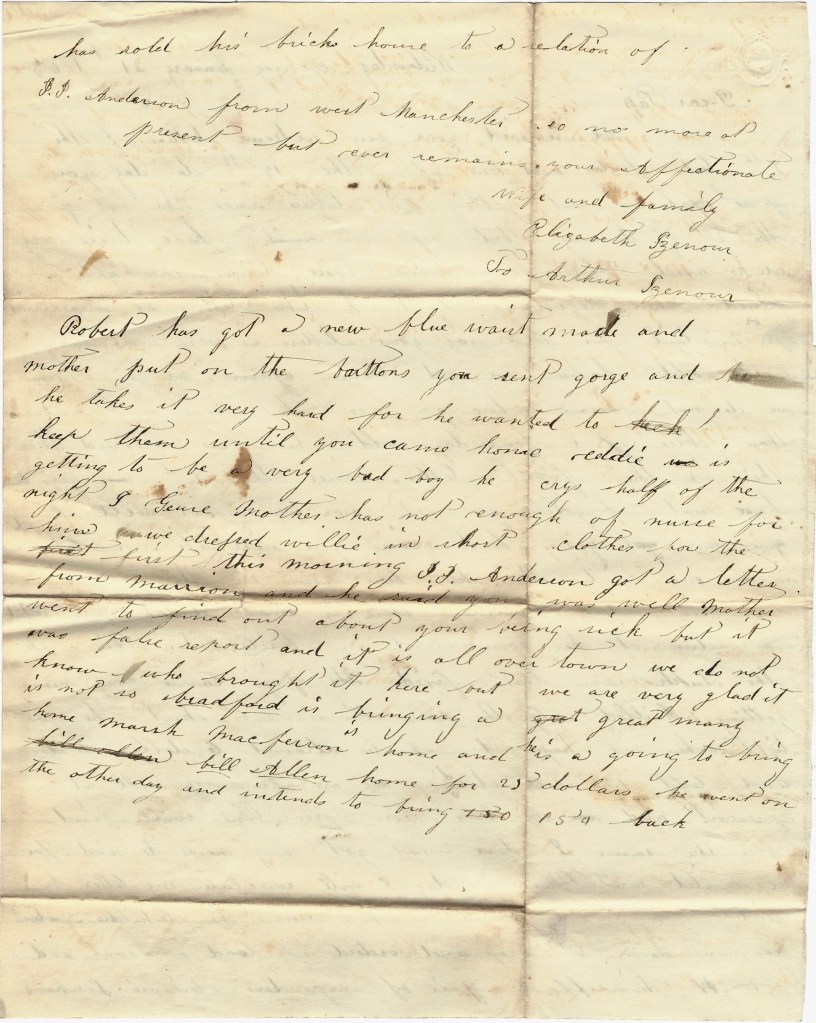 has sold his brick house to a relation of
J.J. Anderson from west Manchester so no more at
present but ever remains your Affectionate
wife and family
Elizabeth Izenour
To Arthur Izenour
Robert has got a new blue waist made and
mother put on the buttons you sent gorge and
he takes it very hard for he wanted to
keep them until you came home eddie is
getting to be a very bad boy he crys half of the
night I Geuse Mother has not enough of nurse for
him we dressed willie in short clothes for the
first first this morning J.J. Anderson got a letter
from Marrion and he said you was well Mother
went to find out about your being sick but it
was false report and it is all over town we do not
know who brought it here but we are very glad it
is not so bradford is bringing a great many
home Marsh Macferron is home and he is a going to bring
bill allen bill Allen home for 25 dollars he went on
the other day and intends to bring 150 150 back